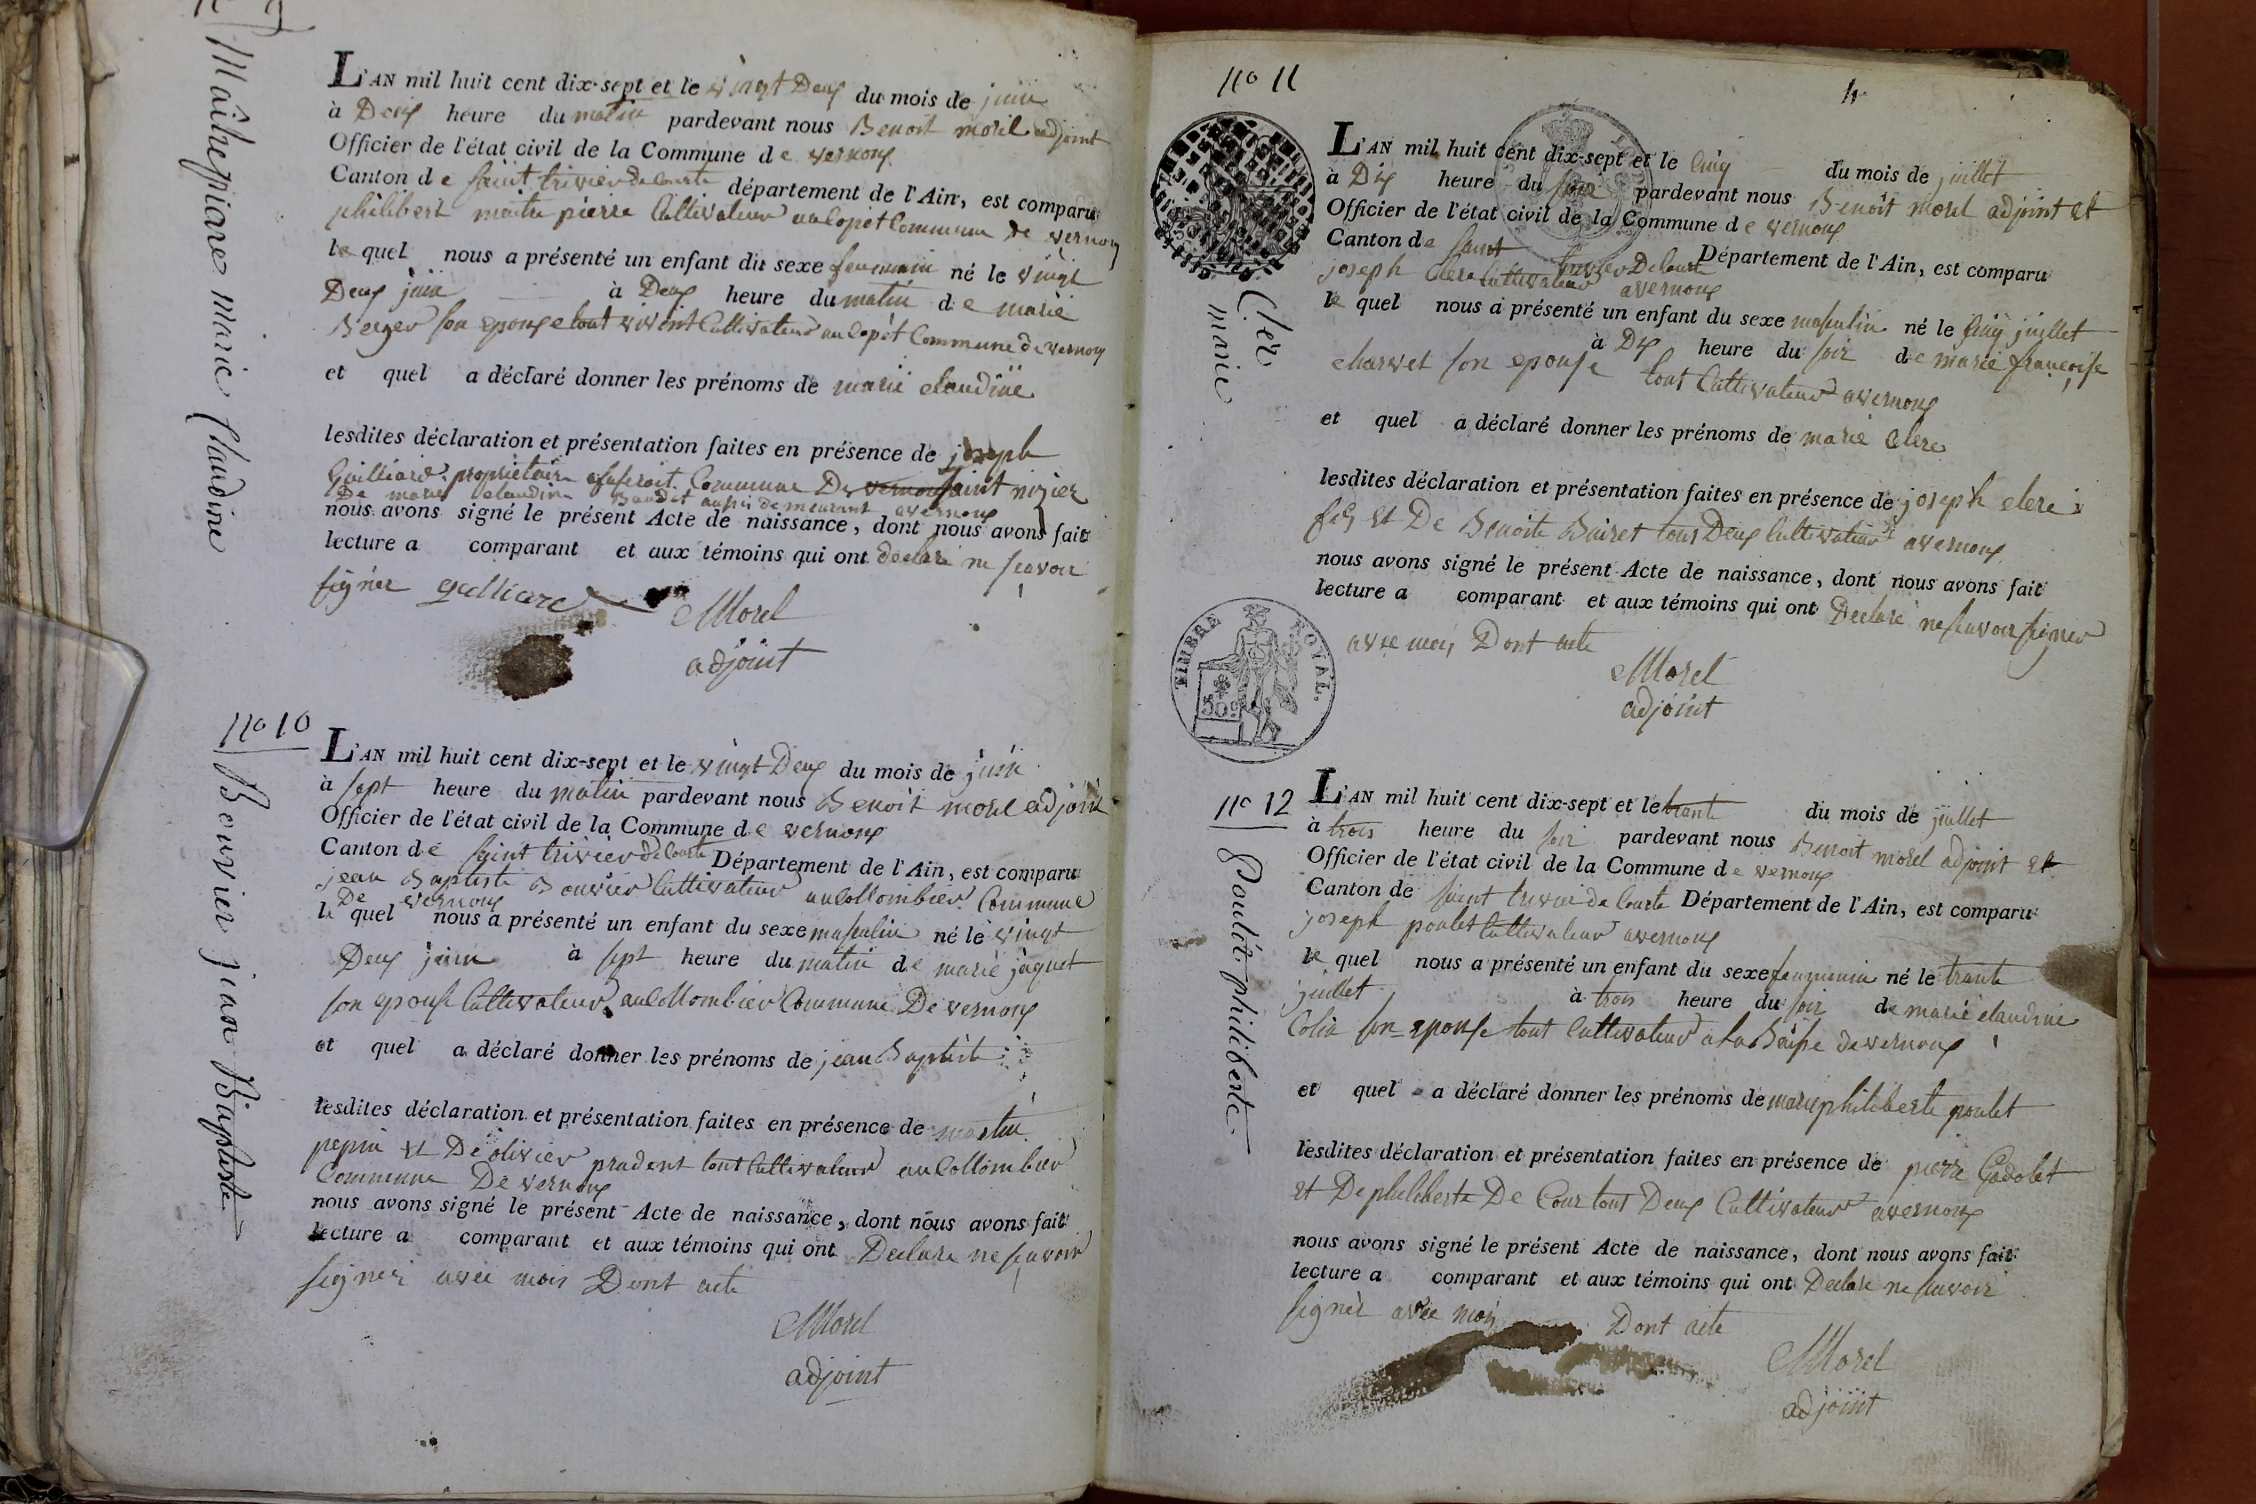 Maitrepiare marie Claudine
L'AN mil huit cent dix-sept et le vingt Deux du mois de juin
à Deux heure du matin pardevant nous Benoit morel adjoint
Officier de l'état civil de la Commune de vernoux
Canton de saint trivier de Courte département de l'Ain, est comparu
philibert maitre pierre Cultivateur au Copot Commune de vernoux
le quel nous a présenté un enfant du sexe feminin né le vingt
Deux juin à Deux heure du matin de marie
Berger son epouse tout vivent Cultivateur au Copot Commune de vernoux
et quel a déclaré donner les prénoms de marie claudine
lesdites déclaration et présentation faites en présence de joseph
Guilliard propriétaire Commune De vernoux saint nizier
De marie claudine Baudet aussi demeurant avernoux
nous avons signé le présent Acte de naissance, dont nous avons fait
lecture a comparant et aux témoins qui ont declaré ne scavoir
signer
Morel
adjoint
no 10
Bouvier jean Baptiste
L'AN mil huit cent dix-sept et le vingt Deux du mois de juin
à sept heure du matin pardevant nous Benoit morel adjoint
Officier de l'état civil de la Commune de vernoux
Canton de saint trivier de Courte Département de l'Ain, est comparu
jean Baptiste Bouvier Cultivateur au Collombier Commune
De vernoux
le quel nous a présenté un enfant du sexe masculin né le vingt
Deux juin à sept heure du matin de marie jaquet
son epouse Cultivateur au Collombier Commune De vernoux
et quel a déclaré donner les prénoms de jean Baptiste
lesdites déclaration et présentation faites en présence de martin
pepin et De olivier prudent tout Cultivateur au Collombier
Commune De vernoux
nous avons signé le présent Acte de naissance, dont nous avons fait
lecture a comparant et aux témoins qui ont Declare ne scavoir
signer avec mois Dont acte
Morel
adjoint
no 11
4
Clèr
marie
L'AN mil huit cent dix-sept et le Cinq du mois de juillet
à Dix heure du soir pardevant nous Benoit morel adjoint et
Officier de l'état civil de la Commune de vernoux
Canton de saint trivier De Courte Département de l'Ain, est comparu
joseph Clere Cultivateur avernoux
le quel nous a présenté un enfant du sexe masculin né le Cinq juillet
à Dix heure du soir de marie françoise
charvet son epouse tout Cultivateur avernoux
et quel a déclaré donner les prénoms de marie Clere
lesdites déclaration et présentation faites en présence de joseph clere
fils et De Benoite Buiret tous Deux Cultivateur avernoux
nous avons signé le présent Acte de naissance, dont nous avons fait
lecture a comparant et aux témoins qui ont Declaré ne scavoir signer
avec moi, Dont acte
TIMBRE ROYAL.
50c
Morel
adjoint
no 12
Poulet philiberte
L'AN mil huit cent dix-sept et le trante du mois de juillet
à trois heure du soir pardevant nous Benoit morel adjoint et
Officier de l'état civil de la Commune de vernoux
Canton de saint trivier de Courte Département de l'Ain, est comparu
joseph poulet Cultivateur avernoux
le quel nous a présenté un enfant du sexe feminin né le trante
juillet à trois heure du soir de marie claudine
Colin son epouse tout Cultivateur a la Baisse de vernoux
et quel a déclaré donner les prénoms de marie philiberte poulet
lesdites déclaration et présentation faites en présence de pierre Gadolet
et De philiberte De Cour tout Deux Cultivateur avernoux
nous avons signé le présent Acte de naissance, dont nous avons fait
lecture a comparant et aux témoins qui ont Declare ne scavoir
signer avec moi, Dont acte
Morel
adjoint